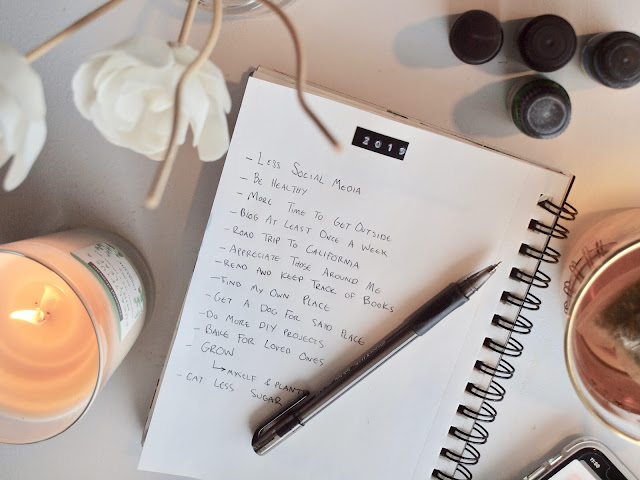 2019
- Less Social Media
- Be Healthy
- More Time to Get Outside
- Blog At Least Once A Week
- Road Trip to California
- Appreciate Those Around Me
- Read and Keep Track of Books
- Find My Own Place
- Get A Dog For Said Place
- Do More DIY Projects
- Bake For Loved Ones
- Grow
↳ Myself & Plants
- Eat Less Sugar